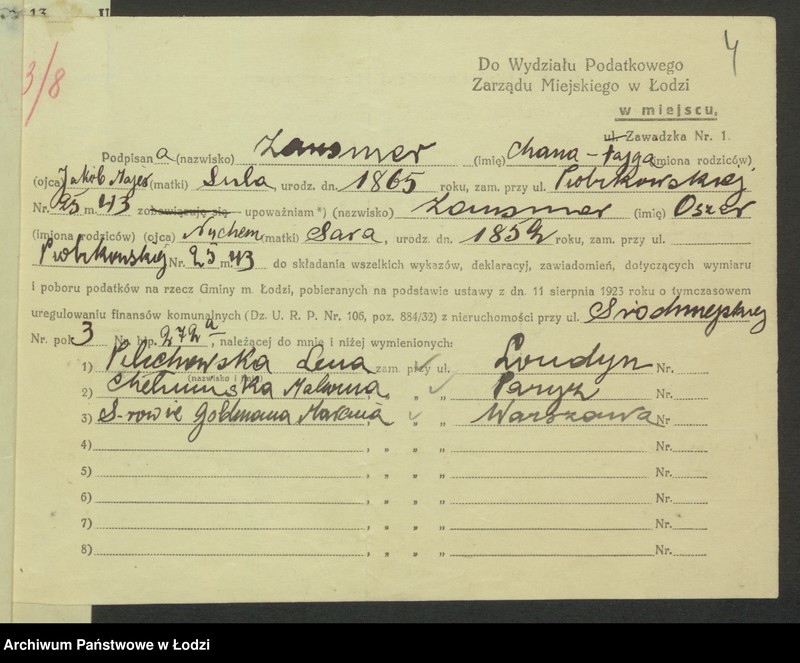 4
3/8
Do Wydziału Podatkowego
Zarządu Miejskiego w Łodzi
w miejscu,
ul. Zawadzka Nr. 1.
Podpisana (nazwisko) Zausmer (imię) Chana-Fajga (imiona rodziców)
(ojca) Jakób Majer (matki) Sula, urodz. dn. 1865 roku, zam. przy ul. Piotrkowskiej
Nr. 25 m. 43 zobowiązuję się upoważniam *) (nazwisko) Zausmer (imię) Oszer
(imiona rodziców) (ojca) Nychem (matki) Sara, urodz. dn. 1852 roku, zam. przy ul.
Piotrkowskiej Nr. 25 m. 43 do składania wszelkich wykazów, deklaracyj, zawiadomień, dotyczących wymiaru
i poboru podatków na rzecz Gminy m. Łodzi, pobieranych na podstawie ustawy z dn. 11 sierpnia 1923 roku o tymczasowem
uregulowaniu finansów komunalnych (Dz. U. R. P. Nr. 106, poz. 884/32) z nieruchomości przy ul. Śródmiejskiej
Nr. pol. 3 Nr. hip. 272a, należącej do mnie i niżej wymienionych:
1) Pilichowska Lena zam. przy ul. Londyn Nr.
(nazwisko i imię)
2) Chełmińska Malwina, „ „ Paryż Nr.
3) S-rowie Goldmana Maksa, „ „ Warszawa Nr
4) , „ „ „ Nr.
5) , „ „ „ Nr.
6) , „ „ „ Nr.
7) , „ „ „ Nr.
8) , „ „ „ Nr.
Archiwum Państwowe w Łodzi